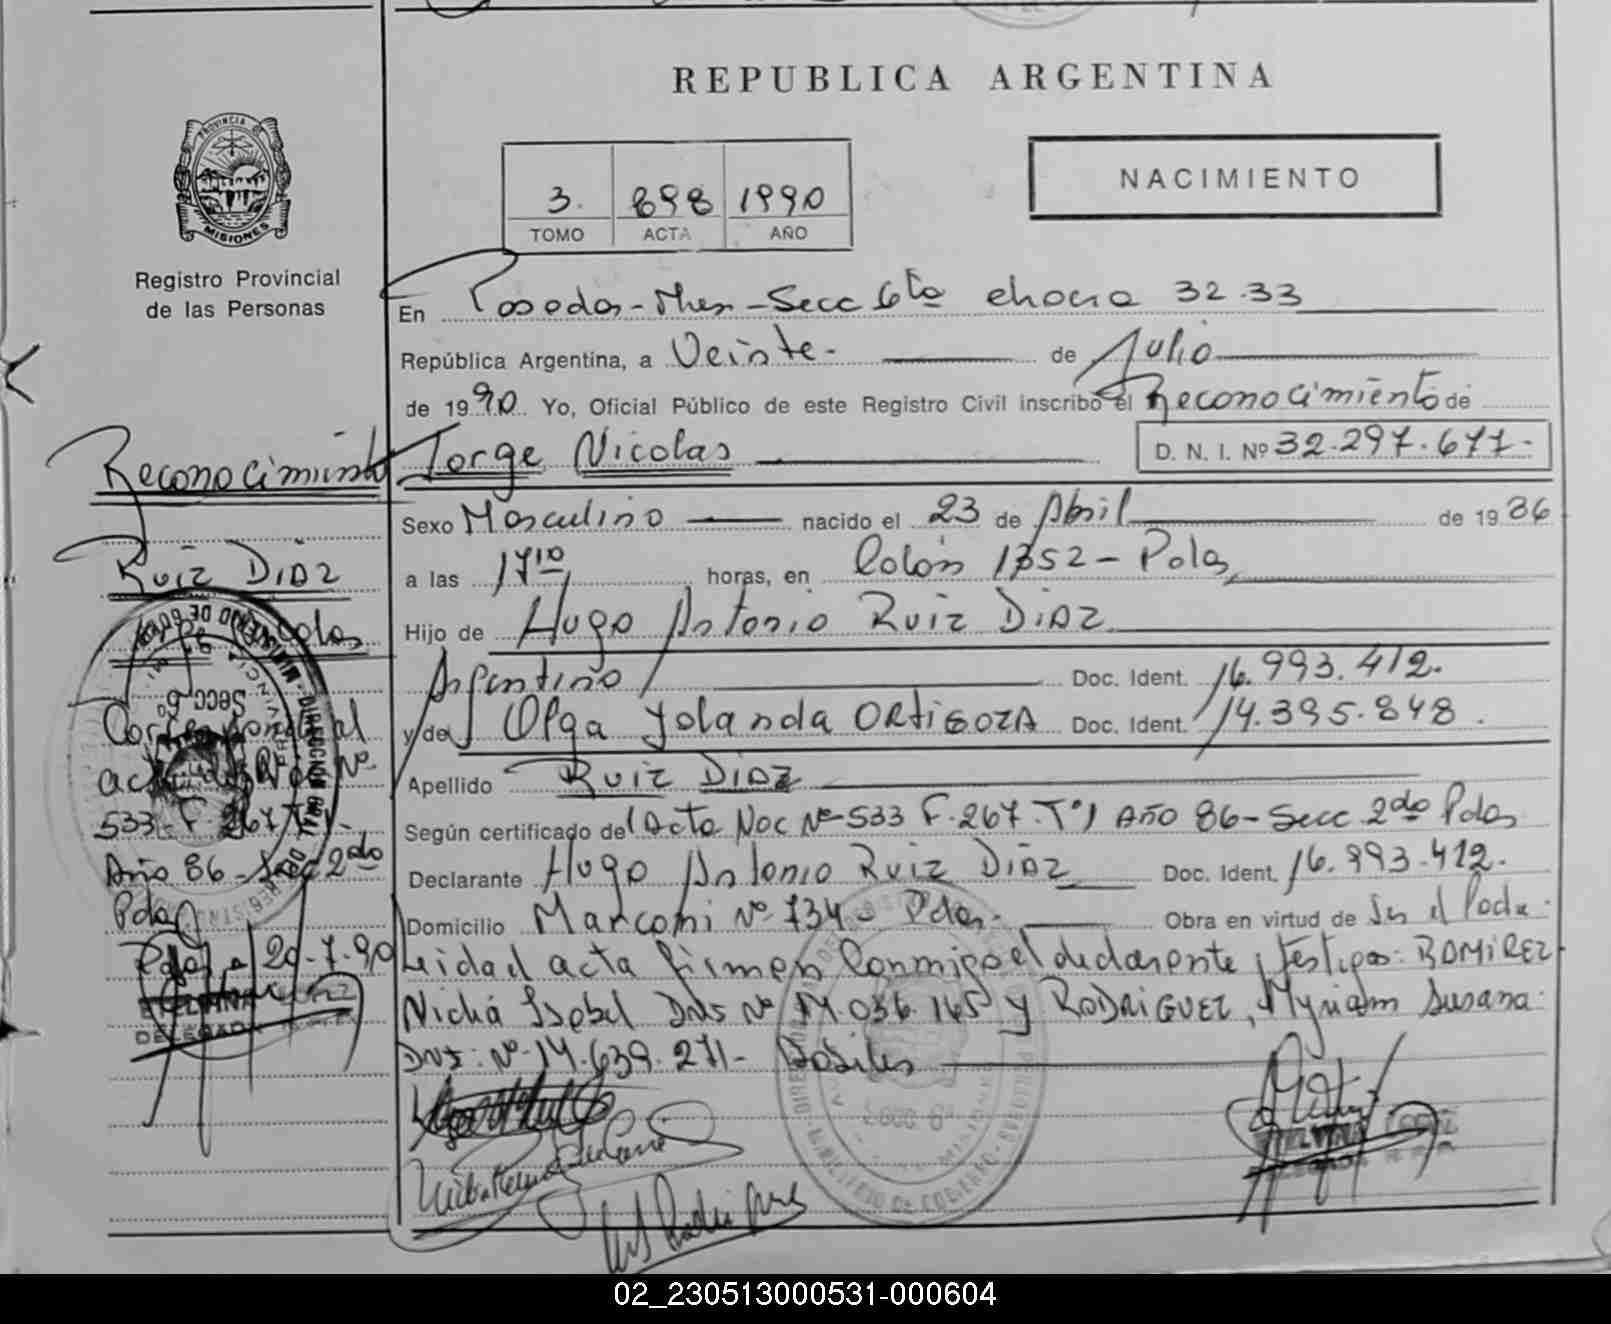 REPUBLICA ARGENTINA
PROVINCIA DE
MISIONES
Registro Provincial
de las Personas
3. 898 1990
TOMO ACTA AÑO
NACIMIENTO
En Posadas - Mnes - Secc 6ta chacra 32-33
República Argentina, a Veinte - de Julio
de 1990 Yo, Oficial Público de este Registro Civil inscribo el Reconocimiento de
Jorge Nicolas D. N. I. Nº 32.297.677.-
Sexo Masculino nacido el 23 de Abril de 1986
a las 17 10 horas, en Colón 1352 - Pdas
Hijo de Hugo Antonio Ruiz Diaz
Argentino Doc. Ident. 16.993.412.
y de Olga Yolanda ORTIGOZA Doc. Ident. 14.395.848.
Apellido Ruiz Diaz
Según certificado de (Acta Nac Nº 533 F. 267. Tº 1 Año 86 - Secc 2do Pdas
Declarante Hugo Antonio Ruiz Diaz Doc. Ident. 16.993.412.
Domicilio Marconi Nº 734 - Pdas. Obra en virtud de
Leida el acta firman conmigo el declarante y testigos: RAMIREZ
Isabel DNI Nº 14.036.145 y RODRIGUEZ, Myriam Susana
DNI: Nº 14.639.271 -
Reconocimiento
Ruiz Diaz
Nicolas
533 F 267
Año 86 - Secc 2do
Pdas
Pdas, a 20-7-90
DELEGADA
02_230513000531-000604